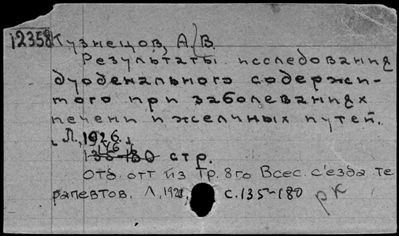 12358 Кузнецов, А. В.
Результаты исследования
дуоденального содержи-
мого при заболеваниях
печени и желчных путей.
Л., 1926.
146
135-180 стр.
Отд. отт из Тр. 8го Всес. съезда те
рапевтов. Л., 192 с. 135-180
рк